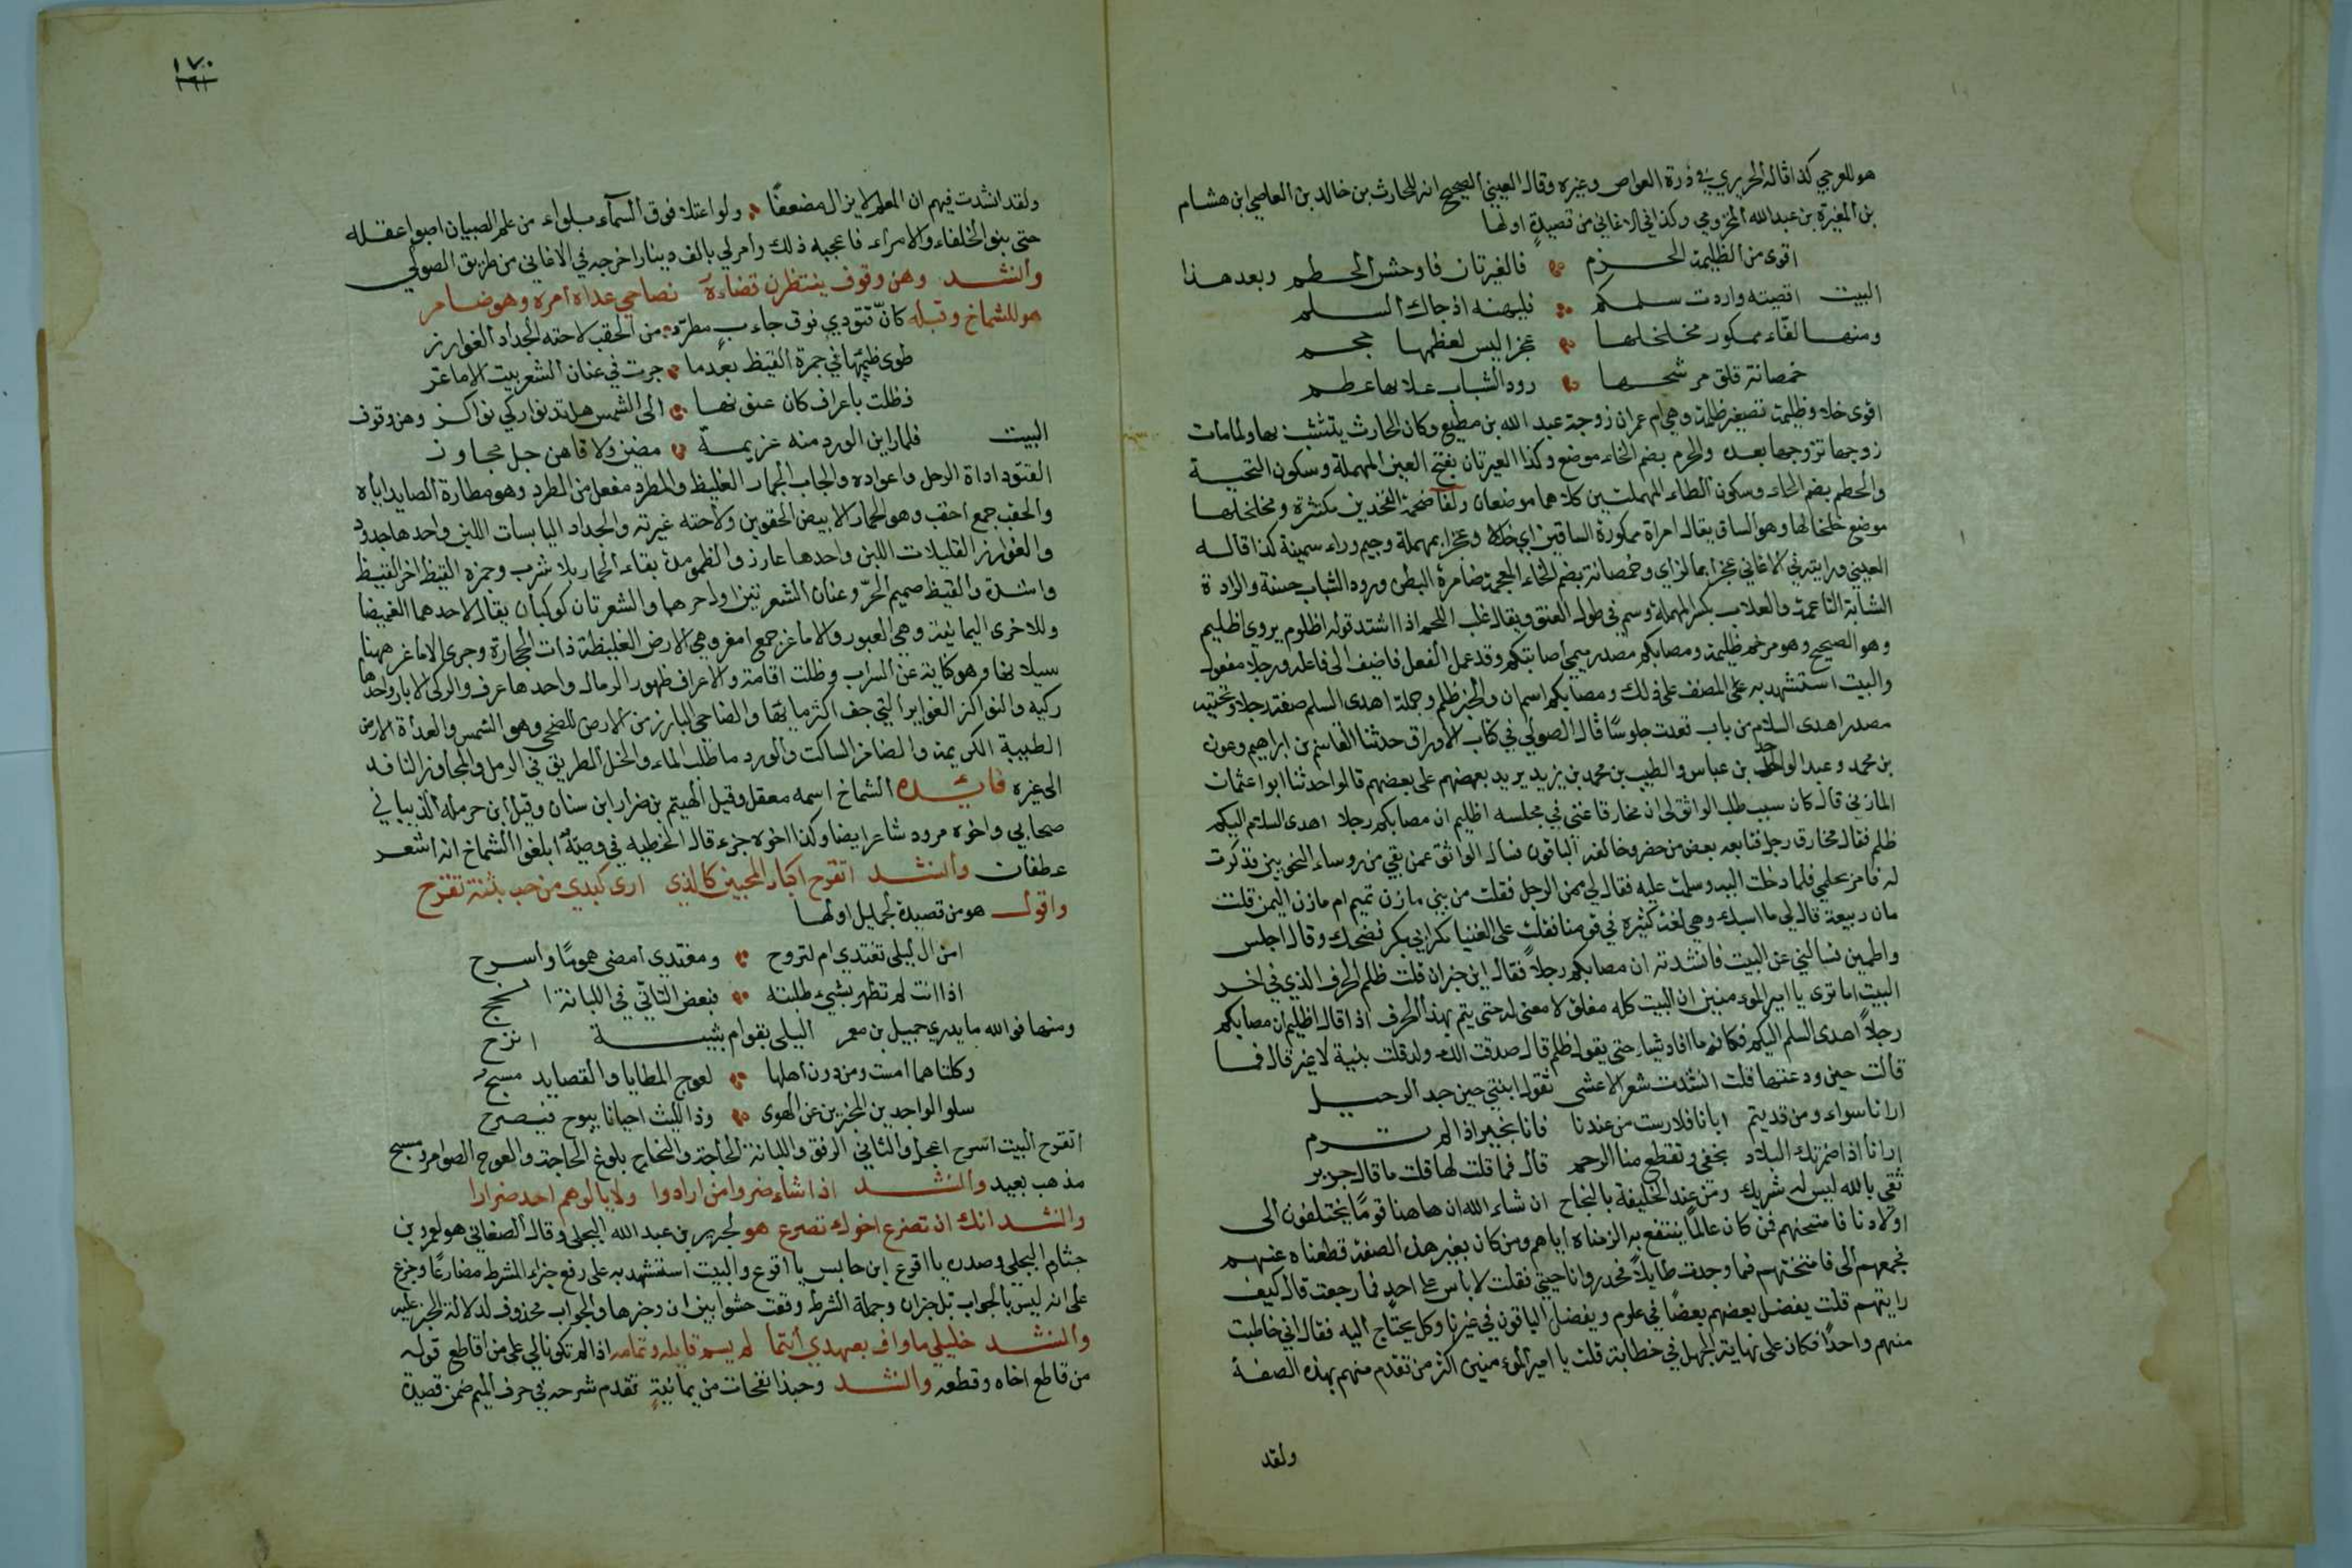 هو للعرجي كذا قاله الحريري في درة الغواص وغيره وقال العيني الصحيح انه للحارث بن خالد بن العاصي ابن هشام
بن المغيرة بن عبد الله المخزومي وكذا في الاغاني من قصيدة اولها
اقوى من الظليمة الحزم فالغيرتان فاوحش الحطم وبعد هذا
البيت اقصيته واردت سلمكم فليهنه اذ جاك السلم
ومنها لفاء ممكور مخلخلها عجزا ليس لعظمها حجم
خمصانة قلق مرشحها رود الشباب علا بها عظم
اقوى خلا وظليمة تصغير ظلمة وهي ام عمران زوجة عبد الله بن مطيع وكان الحارث يتشبب بها ولما مات
زوجها تزوجها بعد والحزم بضم الخاء موضع وكذا العيرتان بفتح العين المهملة وسكون التحية
والحطم بضم الحاء وسكون الطاء المهملتين كلاهما موضعان ولفا ضخمة الفخدين مكتنزة ومخلخلها
موضع خلخالها وهو الساق يقال امراة ممكورة الساقين اي خدلا وعجزا بمهملة وجيم وراء سمينة كذا قاله
العيني ورايته في الاغاني عجزا بالزاي وخمصانة بضم الخاء المعجمة ضامرة البطن ورود الشباب حسنة والرادة
الشابة الناعمة والعلاب بكسر المهملة وسم في طول العنق ويقال غلب اللحم اذا اشتد قوله اظلوم يروى اظليم
وهو الصحيح وهو مرخم ظليمة ومصابكم مصدر ميمي اصابتكم وقد عمل الفعل فاضيف الى فاعله ورجلا مفعوله
والبيت استشهد به على المصنف على ذلك ومصابكم اسم ان والخبر ظلم وجملة اهدى السلم صفة رجلا وتحتيه
مصدر اهدى السلام من باب قعدت جلوسا قال الصولي في كتاب الاوراق حدثنا القاسم بن ابراهيم وعون
بن محمد وعبد الواحد بن عباس والطيب بن محمد بن يزيد يزيد بعضهم على بعضهم قالوا حدثنا ابو اعثمان
المازني قال كان سبب طلب الواثق لى ان مخارقا غنى في مجلسه اظليم ان مصابكم رجلا اهدى السلام اليكم
ظلم فقال مخارق رجل فتابعه بعض من حضر وخالفه الباقون فسال الواثق عمن بقي من روساء النحويين فذكرت
له فامر بحملي فلما دخلت اليه وسلمت عليه فقال لي ممن الرجل فقلت من بني مازن تميم ام مازن اليمن قلت
مازن ربيعة قال لي ما اسبك وهي لغة كثيرة في قومنا فقلت على الغنيا مكر اي بكر فضحك وقال اجلس
واطمين فسالني عن البيت فانشدته ان مصابكم رجلا فقال اين خبر ان قلت ظلم الحرف الذي في اخر
البيت اما ترى يا امير المومنين ان البيت كله مغلق لا معنى له حتى يتم بهذا الحرف اذا قال اظليم ان مصابكم
رجلا اهدى السلم اليكم فكانه ما افاد شياء حتى يقول ظلم قال صدقت الك ولد قلت بنية لا غير قال فما
قالت حين ودعتها قلت انشدت شعر الاعشى تقول ابنتي حين جد الرحيل
ارانا سواء ومن قد يتم ابانا فلا رمت من عندنا فانا بخير اذا لم ترم
ارانا اذا اضمرتك البلاد نجفى وتقطع منا الرحم قال فما قلت لها قلت ما قال جرير
ثقي بالله ليس له شريك ومن عند الخليفة بالنجاح ان شاء الله ان هاهنا قوما يختلفون الى
اولادنا فامتحنهم فمن كان عالما ينتفع به الزمناه اياهم ومن كان بغير هذه الصفة قطعناه عنهم
فجمعهم الى فامتحنتهم فما وجدت طايلا فحدروا ناحيتي فقلت لا باس على احد فما رجعت قال كيف
رايتهم قلت يفضل بعضهم بعضا في علوم ويفضل الباقون في غيرها وكل يحتاج اليه فقال اني خاطبت
منهم واحدا فكان على نهاية الجهل في خطابه قلت يا امير المومنين اكثر من تقدم منهم بهذه الصفة
ولقد
١٧٠
ولقد انشدت فيهم ان المعلم لا يزال مضعفا ولو اعتلا فوق السماء بلواء من علم الصبيان اصبوا عقله
حتى بنو الخلفاء والامراء فاعجبه ذلك وامر لي بالف دينار اخرجه في الاغاني من طريق الصولي
وانشد وهن وقوف ينتظرن قضاءه نصاحي عداه امره وهو ضامر
هو للشماخ وقبله كان قتودي فوق جاءب مطرد من الحقب لاحته الجداد الغوارز
طوى ظيمها في جمرة القيظ بعدما جرت في عنان الشعريين الاماعز
فظلت باعراف كان عيونها الى الشمس هل تدنو اركي نواكز وهن وقوف
البيت فلما راين الورد منه عزيمة مضين ولاقاهن جل مجاوز
القتود اداة الرحل واعواده والجاب الحمار الغليظ والمطرد مفعل من المطرد وهو مطاردة الصايد اياه
والحقب جمع احقب وهو الحمار الابيض الحقوين ولاحته غيرته والجداد اليابسات اللبن واحدها جدود
والغوارز القليلات اللبن واحدها غارز والظمو مدة بقاء الحمار بلا شرب وجمرة القيظ اخر القيظ
واشده والقيظ صميم الحر وعنان الشعريين اولاحرهما والشعريان كوكبان يقال لاحدهما الغميضا
وللاخرى اليمانية وهي العبور والاماعز جمع امعز وهي الارض الغليظة ذات الحجارة وجرى الاماعز ههنا
سيلانها وهو كناية عن السراب وظلت اقامة والاعراف ظهور الرمال واحدها عرف والركى الابار واحدها
ركيه والنواكز الغواير التي جف اكثر مايها والضاحي البارز من الارض للضحى وهو الشمس والعداة الارض
الطيبة الكريمة والضامز الساكت والورد ما ظلب الماء والخل الطريق في الرمل والمجاوز النافد
الى غيره فايدة الشماخ اسمه معقل وقيل الهيتم بن ضرار ابن سنان وقيل ابن حرملة الذبياني
صحابي واخوه مزرد شاعر ايضا وكذا اخوه جزء قال الحطيه في وصيته ابلغوا الشماخ انه اشعر
عطفان وانشد اتقرح اكباد المحبين كالذي ارى كبدي من حب بثنة تقرح
واقول هو من قصيدة لجميل اولها
امن ال ليلى تغتدي ام تروح ومغتدى امضى هموما واسرح
اذا انت لم تظهر بشيء طلبته فبعض التاني في اللبانة انجح
ومنها فوالله ما يدري جميل بن معمر اليلى بقو ام بثينة انزح
وكلتاهما امست ومن دون اهلها لعوج المطايا والقصايد مسبح
سلو الواجدين المخبرين عن الهوى وذا البث احيانا يبوح فيصرح
اتقرح البيت اسرح اعجل والتاني الرفق واللبانة الحاجة والنجاح بلوغ الحاجة والعوج الضوامر ومسبح
مذهب بعيد وانشد اذا شاء ضروا من ارادوا ولا يالوهم احد ضرارا
وانشد انك ان تصرع اخوك تصرع هو لجرير بن عبد الله البجلي وقال الصغاني هو لعمرو بن
جثارم البجلي وصدره يا اقرع ابن حابس يا اقرع والبيت استشهد به على رفع جزاء الشرط مضارعا وخرج
على انه ليس بالجواب بل خبر ان وجملة الشرط وقعت حشوا بين ان وخبرها والجواب محذوف لدلالة الخبر عليه
وانشد خليلي ما واف بعهدي انتما لم يسم قايله وتمامه اذا لم تكونا لي على من اقاطع قوله
من قاطع اخاه وقطعه وانشد وحبذا نفحات من يمانية تقدم شرحه في حرف الميم ضمن قصيدة